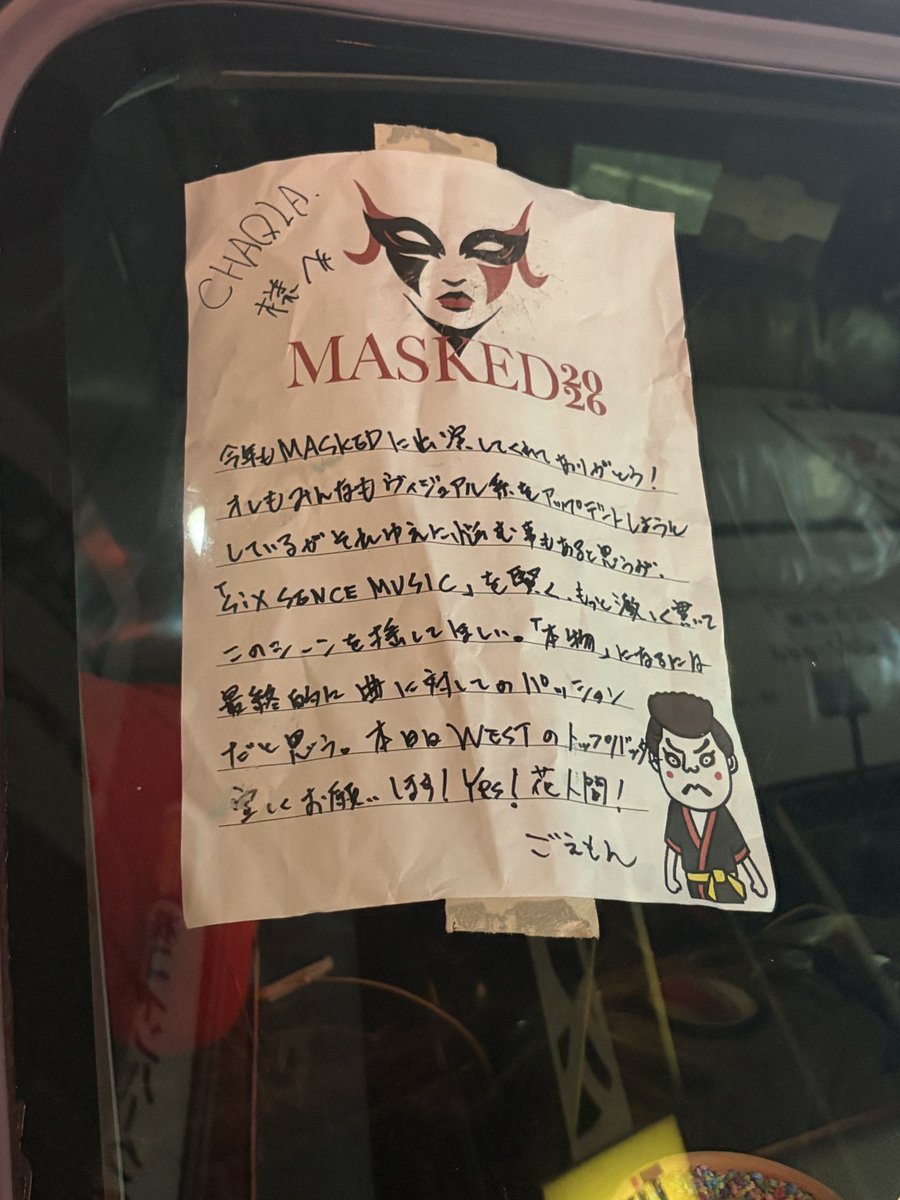 CHAQLA.
様へ
MASKED 2026
今年もMASKEDに出演してくれてありがとう!
オレもみんなもヴィジュアル系をアップデートしようと
しているがそれゆえに悩む事もあると思うが、
「SiX SENCE MUSIC」を賢く、もっと激しく貫いて
このシーンを揺してほしい。「本物」になるには
最終的に曲に対してのパッション
だと思う。本日はWESTのトップバッター
宜しくお願いします!Yes!花人間!
ごえもん